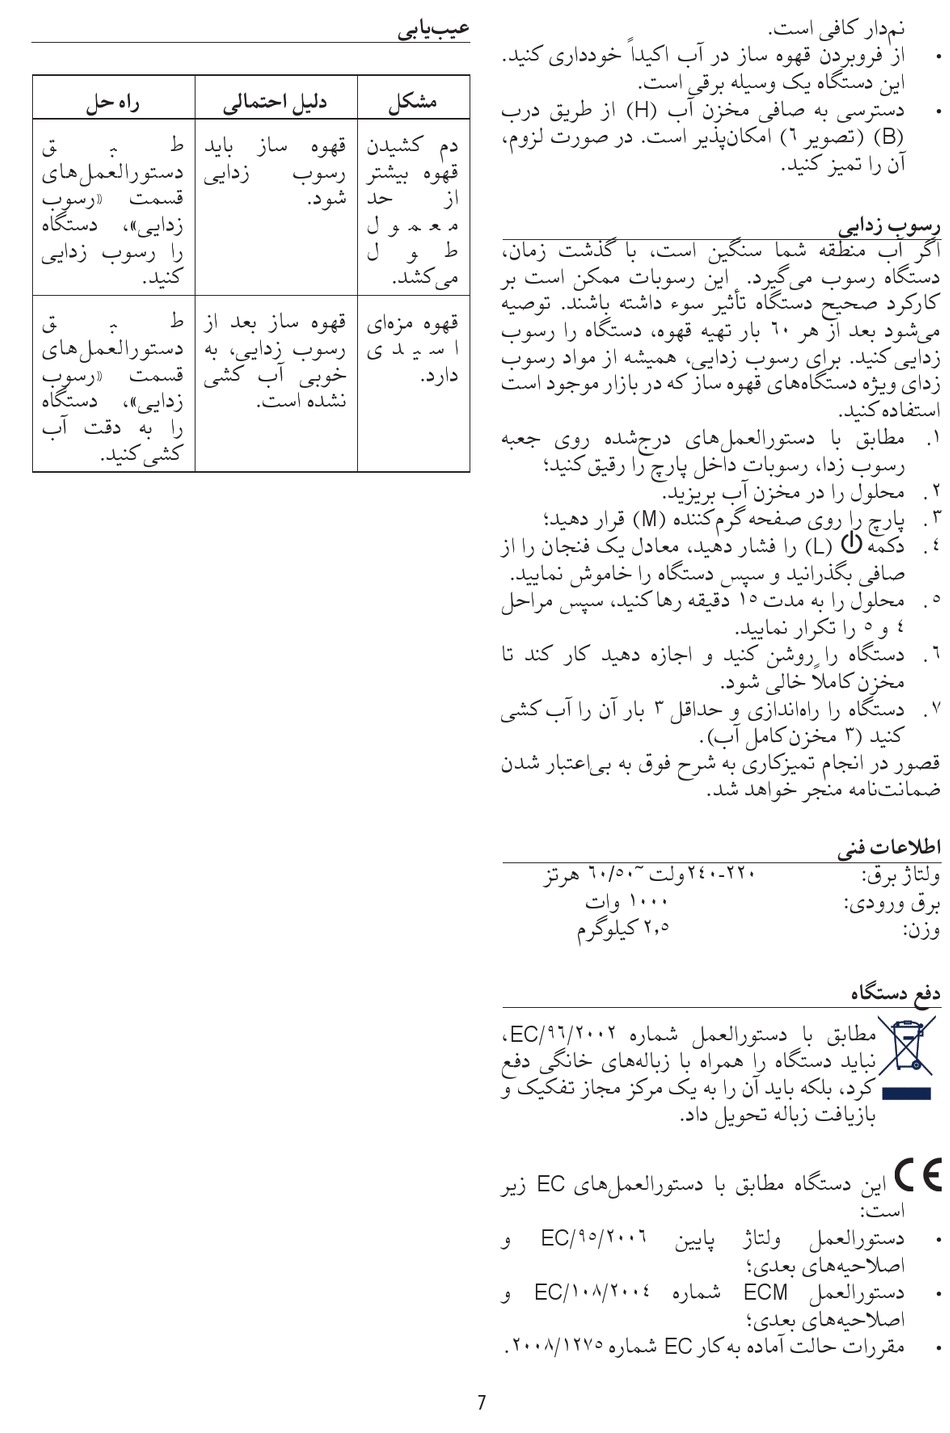 نم‌دار کافی است.
• از فروبردن قهوه ساز در آب اکیداً خودداری کنید.
این دستگاه یک وسیله برقی است.
• دسترسی به صافی مخزن آب (H) از طریق درب
(B) (تصویر ٦) امکان‌پذیر است. در صورت لزوم،
آن را تمیز کنید.
رسوب زدایی
اگر آب منطقه شما سنگین است، با گذشت زمان،
دستگاه رسوب می‌گیرد. این رسوبات ممکن است بر
کارکرد صحیح دستگاه تأثیر سوء داشته باشند. توصیه
می‌شود بعد از هر ٦٠ بار تهیه قهوه، دستگاه را رسوب
زدایی کنید. برای رسوب زدایی، همیشه از مواد رسوب
زدای ویژه دستگاه‌های قهوه ساز که در بازار موجود است
استفاده کنید.
١. مطابق با دستورالعمل‌های درج‌شده روی جعبه
رسوب زدا، رسوبات داخل پارچ را رقیق کنید؛
٢. محلول را در مخزن آب بریزید.
٣. پارچ را روی صفحه گرم‌کننده (M) قرار دهید؛
٤. دکمه (L) را فشار دهید، معادل یک فنجان را از
صافی بگذرانید و سپس دستگاه را خاموش نمایید.
٥. محلول را به مدت ١٥ دقیقه رها کنید، سپس مراحل
٤ و ٥ را تکرار نمایید.
٦. دستگاه را روشن کنید و اجازه دهید کار کند تا
مخزن کاملاً خالی شود.
٧. دستگاه را راه‌اندازی و حداقل ٣ بار آن را آب کشی
کنید (٣ مخزن کامل آب).
قصور در انجام تمیزکاری به شرح فوق به بی‌اعتبار شدن
ضمانت‌نامه منجر خواهد شد.
اطلاعات فنی
ولتاژ برق: ٢٢٠-٢٤٠ ولت ~٦٠/٥٠ هرتز
برق ورودی: ١٠٠٠ وات
وزن: ٢,٥ کیلوگرم
دفع دستگاه
مطابق با دستورالعمل شماره EC/٩٦/٢٠٠٢،
نباید دستگاه را همراه با زباله‌های خانگی دفع
کرد، بلکه باید آن را به یک مرکز مجاز تفکیک و
بازیافت زباله تحویل داد.
CE این دستگاه مطابق با دستورالعمل‌های EC زیر
است:
• دستورالعمل ولتاژ پایین EC/٩٥/٢٠٠٦ و
اصلاحیه‌های بعدی؛
• دستورالعمل ECM شماره EC/١٠٨/٢٠٠٤ و
اصلاحیه‌های بعدی؛
• مقررات حالت آماده به کار EC شماره ٢٠٠٨/١٢٧٥.
عیب‌یابی
مشکل دلیل احتمالی راه حل
دم کشیدن
قهوه بیشتر
از حد
معمول
طول
می‌کشد.
قهوه ساز باید
رسوب زدایی
شود.
طبق
دستورالعمل‌های
قسمت «رسوب
زدایی»، دستگاه
را رسوب زدایی
کنید.
قهوه مزه‌ای
اسیدی
دارد.
قهوه ساز بعد از
رسوب زدایی، به
خوبی آب کشی
نشده است.
طبق
دستورالعمل‌های
قسمت «رسوب
زدایی»، دستگاه
را به دقت آب
کشی کنید.
7